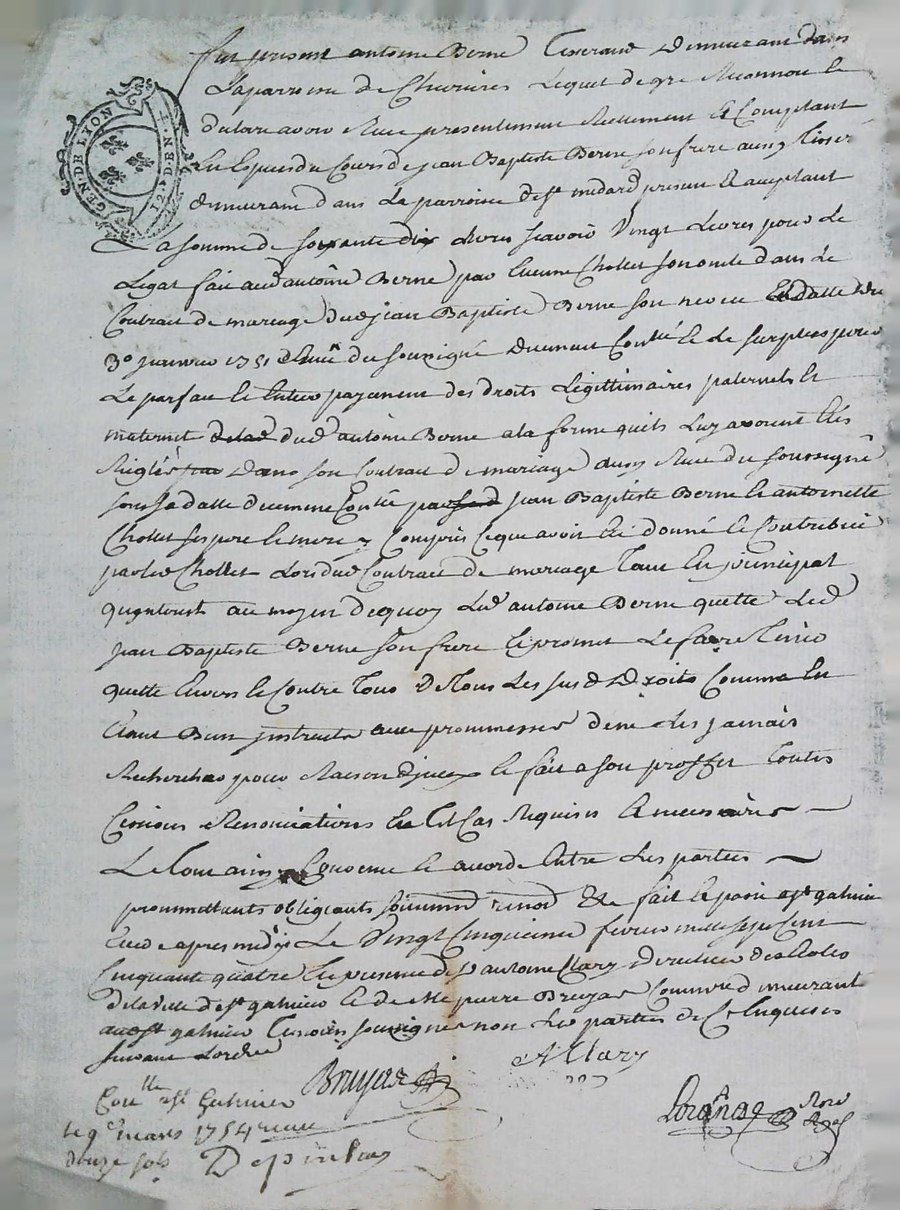 GEN. DE LYON
12. d. B. D. E. N. F.
fut present antoine Berne Tisserand demeurant dans
La parroisse de Chevrieres Lequel de gré Reconnoit et
declare avoir Receu presentement Reellement et Comptant
En Especes du Cours de jean Baptiste Berne son frere aussy Tisser
demeurant dans La parroisse de st medard present et aceptant
La somme de soixante dix Livres scavoir Vingt Livres pour Le
Legat fait aud antoine Berne par Etienne Chollet son oncle dans Le
Contrat de mariage dud jean Baptiste Berne son neveu en datte du
3e janvier 1751 Receu du soussigné duement Contlé et le surplus pour
Le parfait et Entier payement des droits Legittimaires paternels et
maternel dud antoine Berne a la forme quils Luy avoient Etés
Reglés dans son Contrat de mariage aussy Receu du soussigné
sous sa datte duement Contlé par jean Baptiste Berne et antoinette
Chollet ses pere et mere y Compris Ce que avoit Eté donné et Contribué
par led Chollet Lors dud Contrat de mariage Tant En principal
quinterest au moyen de quoy Led antoine Berne quitte Led
jean Baptiste Berne son frere Et promet Le faire Tenir
quitte Envers et Contre Tous de Tous Les susd droits Comme En
Etant Bien instruit avec prommesse den Les jamais
Rechercher pour Raison diceux et fait a son proffit Toutes
Cessions Renonciations En Tel Cas Requises et necessaires
Le Tout ainsy Convenu et acordé Entre Les parties
prommettants obligeants soumett renonc &a fait et passé a st galmier
Etude apres midy Le Vingt Cinquieme fevrier mille sept Cent
Cinquante quatre En presence de sr antoine Allary directeur des
de la ville de st galmier et de Me pierre Bruyas Commis demeurant
st galmier Temoins soussignés non Les parties de Ce Enquises
suivant Lordce
Bruyas
Allary
Conlle a st Galmier
Le 9e mars 1754 receu
douze sols
Nore
Royal